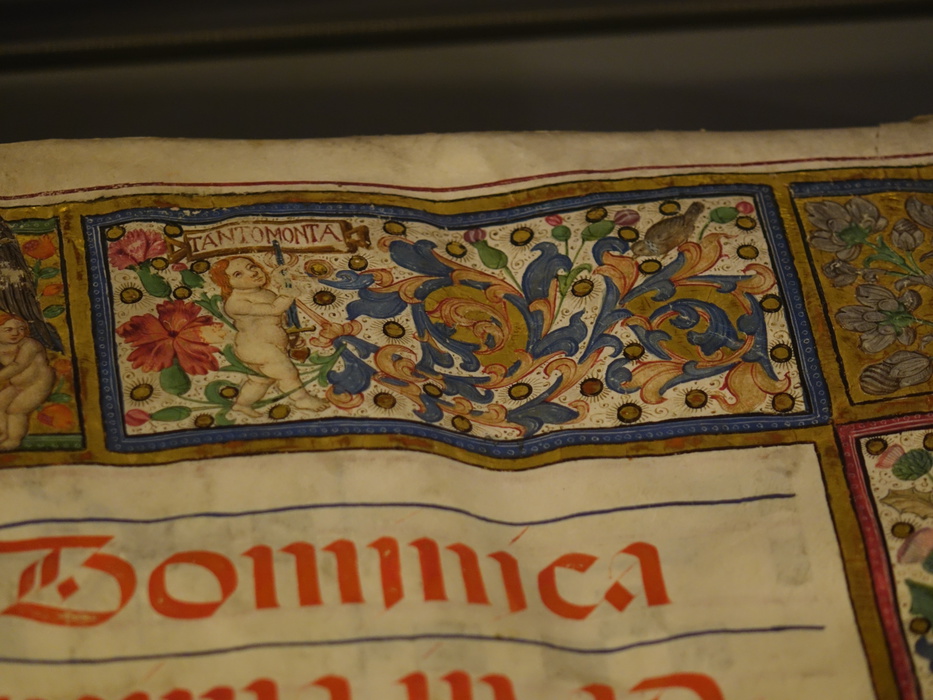 TANTOMONTA
Dominica